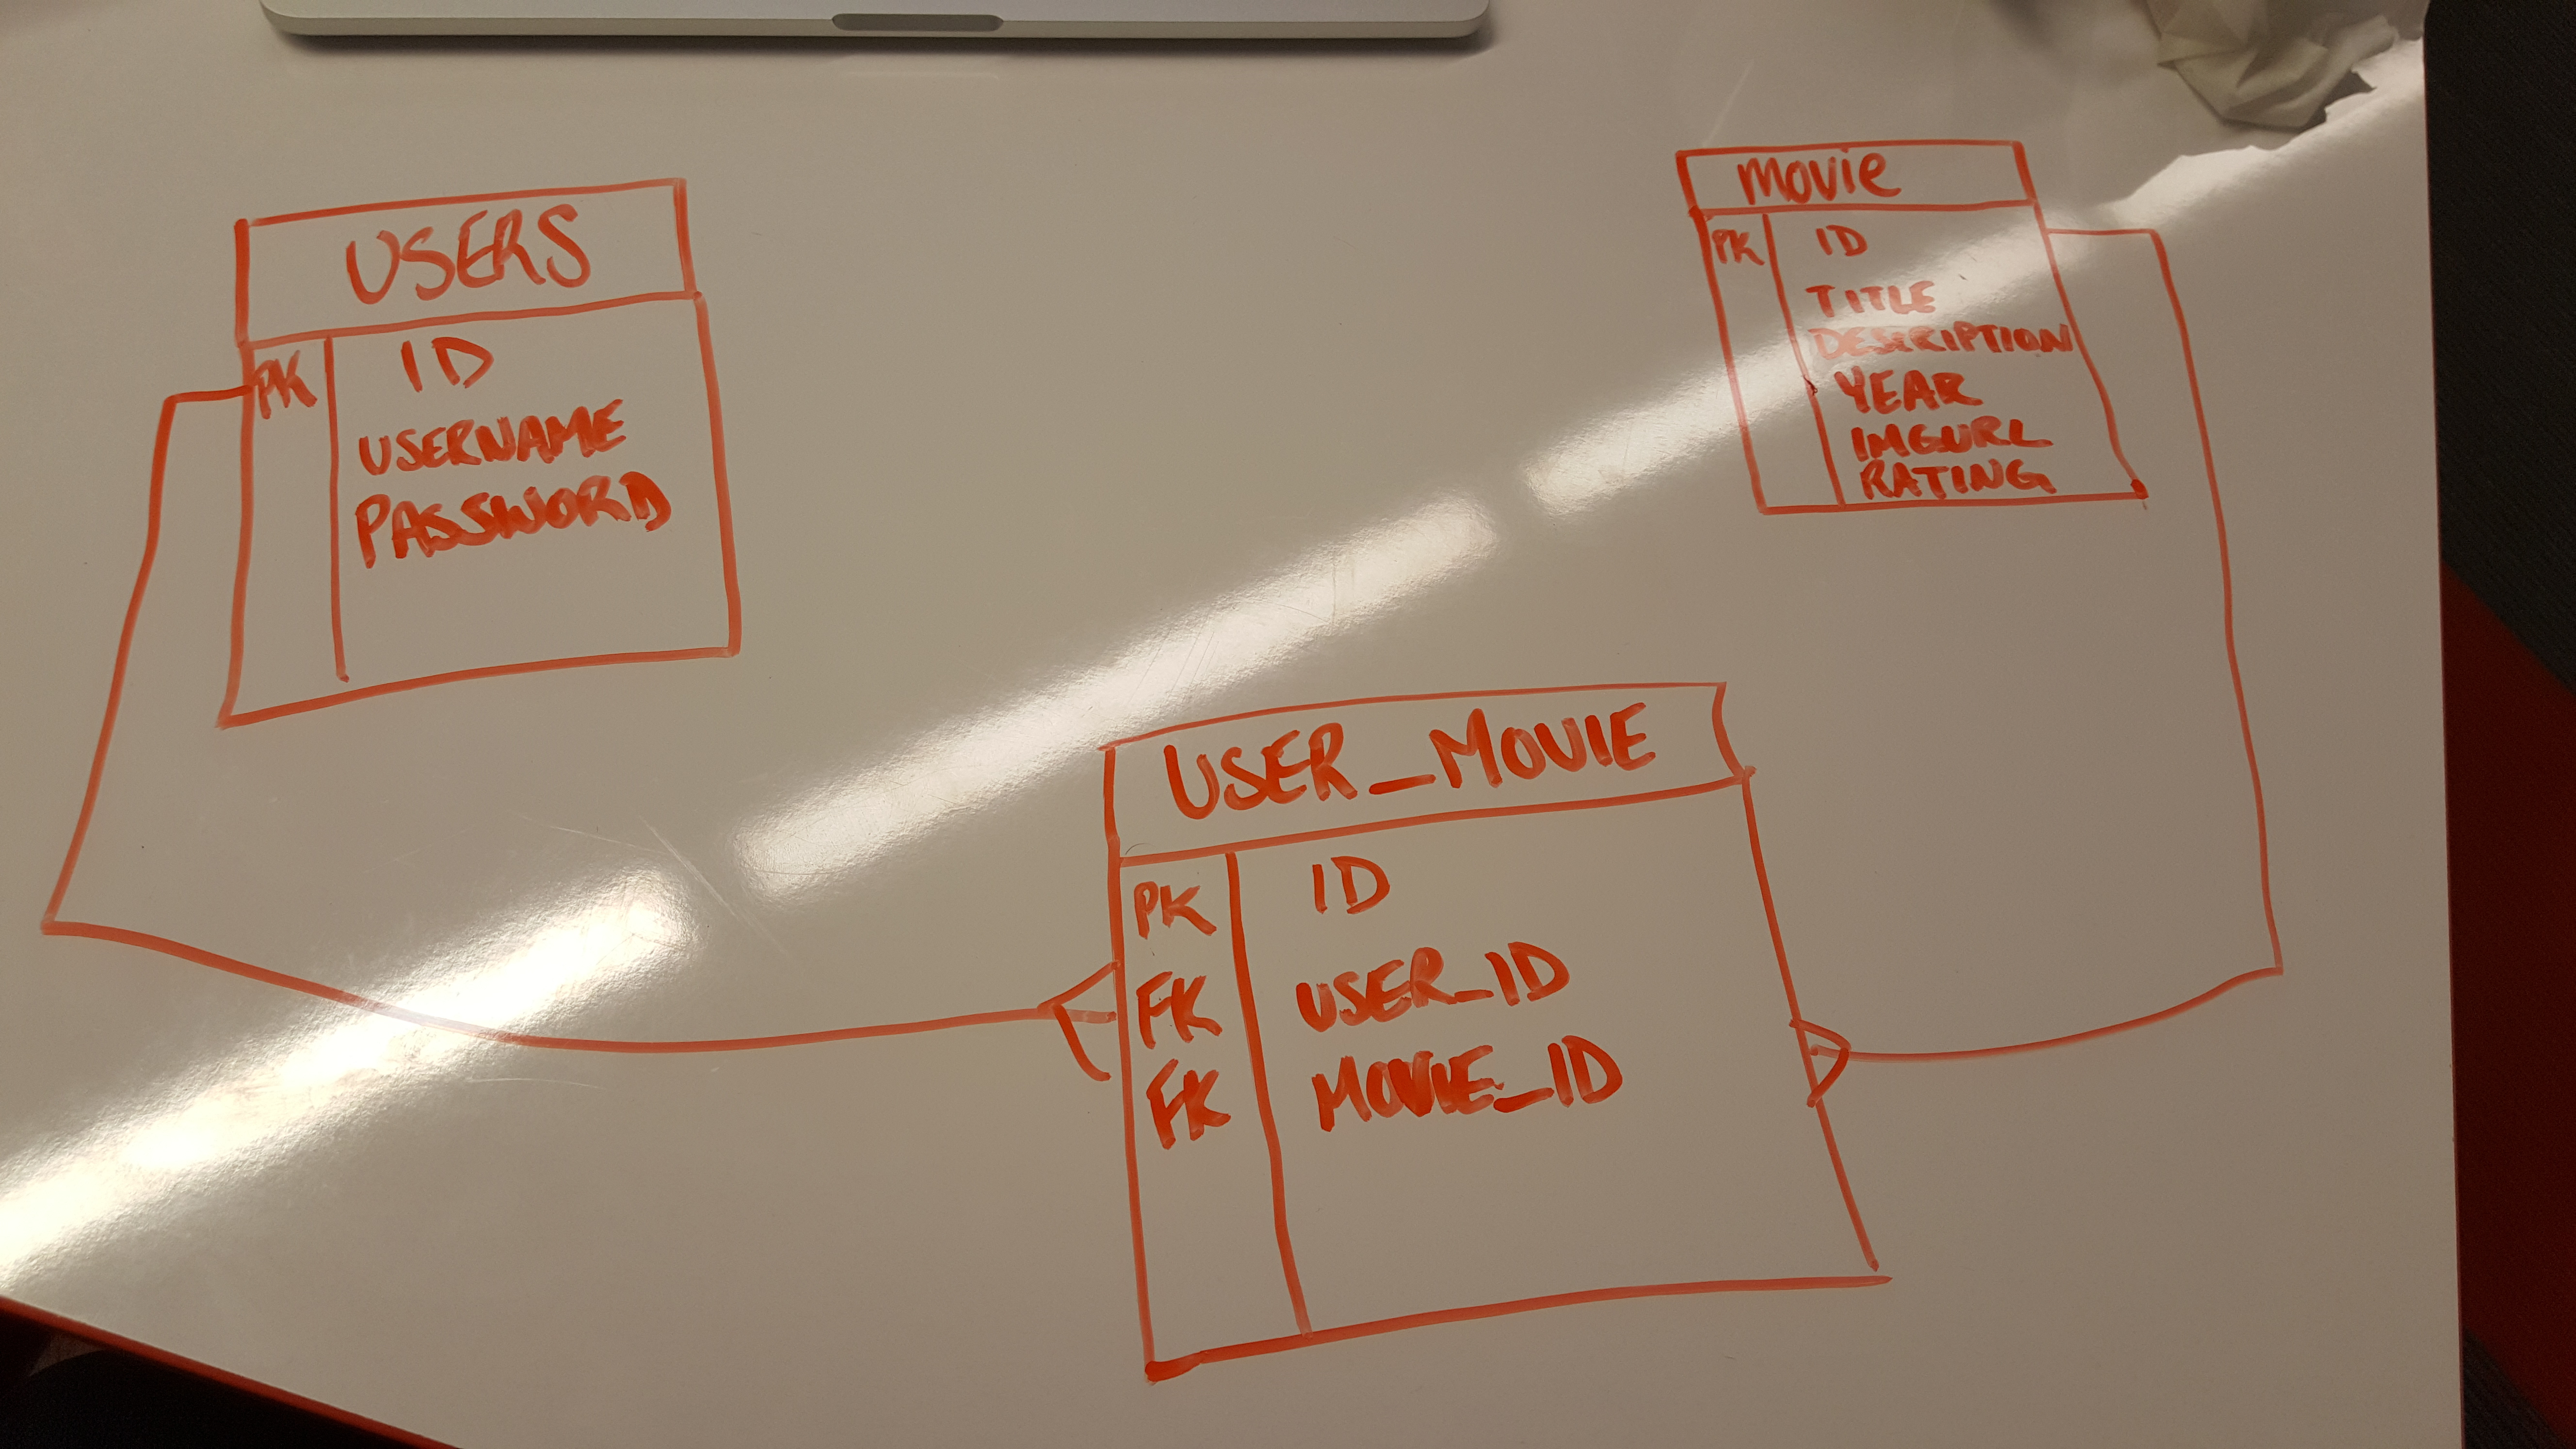 USERS
PK ID
USERNAME
PASSWORD
movie
PK ID
TITLE
DESCRIPTION
YEAR
IMGURL
RATING
USER_MOVIE
PK ID
FK USER_ID
FK MOVIE_ID